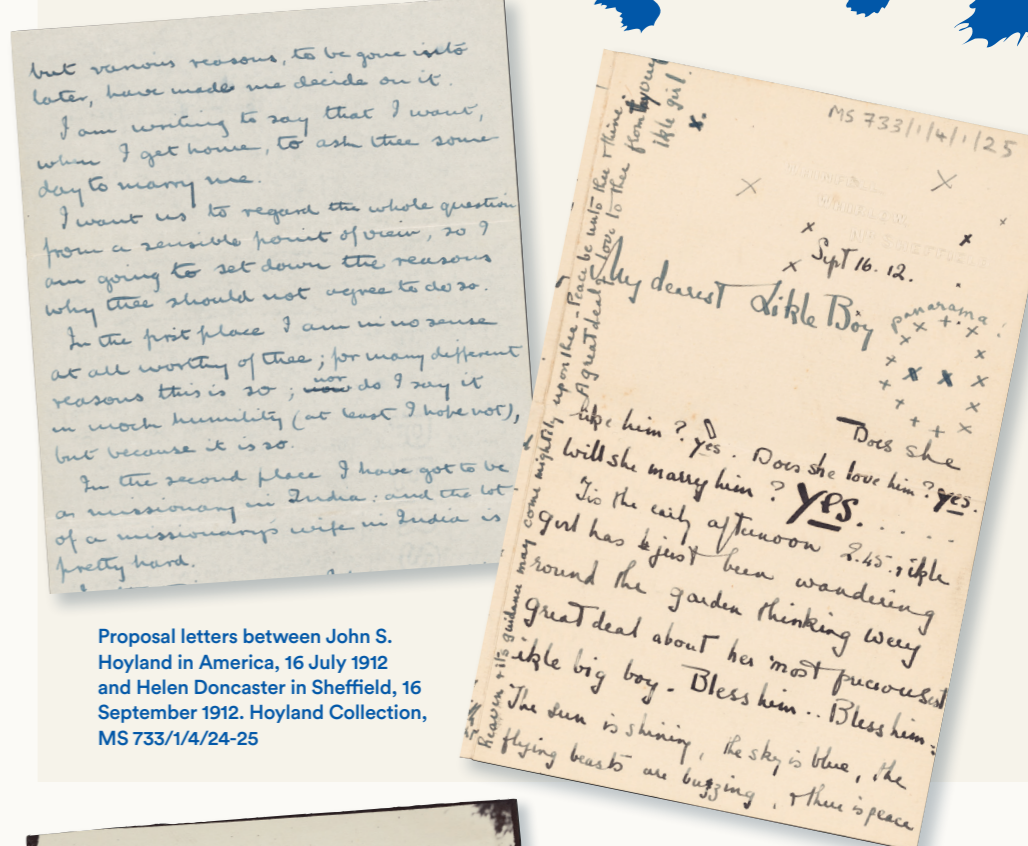 but various reasons, to be gone into
later, have made me decide on it.
I am writing to say that I want,
when I get home, to ask thee some
day to marry me.
I want us to regard the whole question
from a sensible point of view, so I
am going to set down the reasons
why thee should not agree to do so.
In the first place I am in no sense
at all worthy of thee; for many different
reasons this is so; nor do I say it
in mock humility (at least I hope not),
but because it is so.
In the second place I have got to be
a missionary in India: and the lot
of a missionary's wife in India is
pretty hard.
Proposal letters between John S.
Hoyland in America, 16 July 1912
and Helen Doncaster in Sheffield, 16
September 1912. Hoyland Collection,
MS 733/1/4/24-25
MS 733/1/4/1/25
Sept 16. 12.
My dearest Likle Boy
panarama!
Does she
like him? yes. Does she love him? yes.
will she marry him? Yes. . . . .
'Tis the early afternoon 2.45, ikle
girl has just been wandering
round the garden thinking wery
great deal about her most preciousest
ikle big boy. Bless him.. Bless him:
The sun is shining, the sky is blue, the
flying beasts are buzzing, & there is peace
Heaven & its guidance may come mightily upon thee - Peace be unto thee & thine.
A great deal of love to thee from thy very
ikle girl.
x.